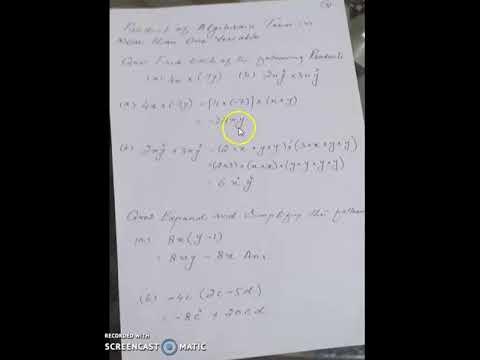 Product of Algebraic Term in
More than One Variable
Ques: Find each of the following Products
(a) 4x × (-7y) (b) 2xy² × 3xy²
(a) 4x × (-7y) = [4 × (-7)] × (x × y)
= -28xy
(b) 2xy² × 3xy² = (2 × x × y × y) × (3 × x × y × y)
= (2×3) × (x × x) × (y × y × y × y)
= 6x²y⁴
Ques: Expand and Simplify the
(a) 8x(y-1)
= 8xy - 8x Ans
(b) -4c (2c-5d)
= -8c² + 20cd
RECORDED WITH
SCREENCAST MATIC